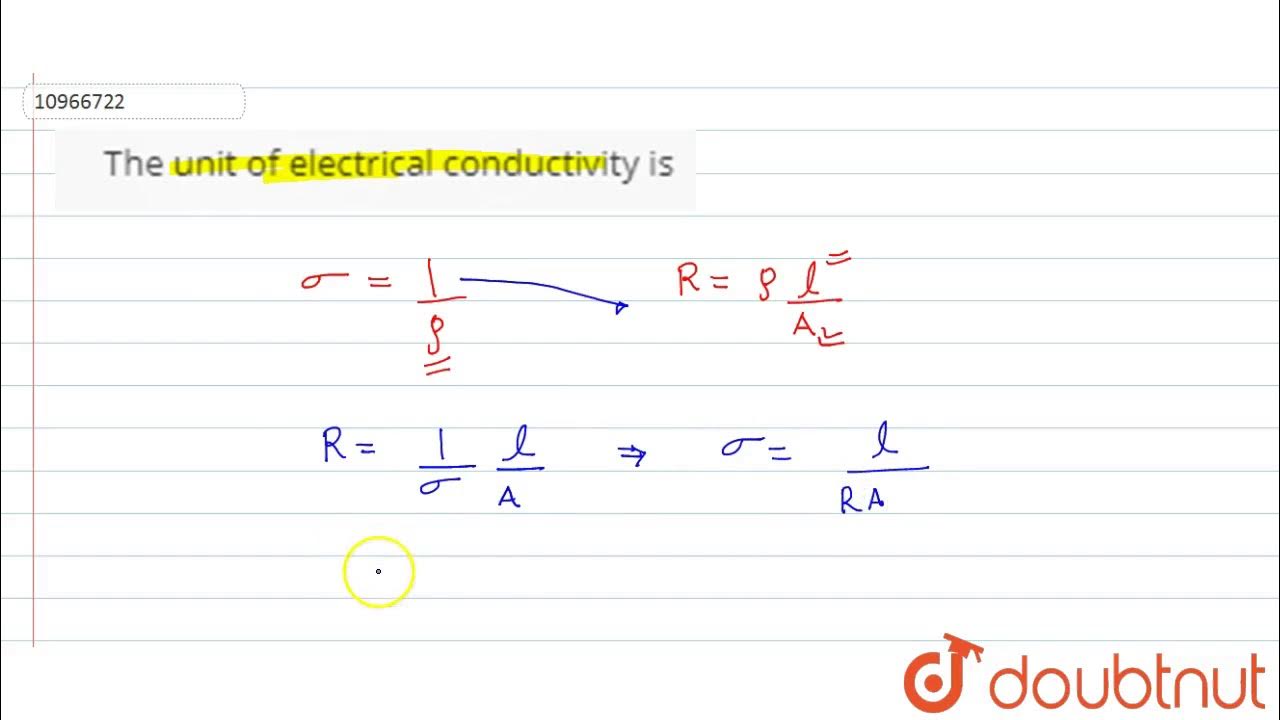 10966722
The unit of electrical conductivity is
σ = 1/ρ R = ρ l/A
R = 1/σ l/A ⇒ σ = l/RA
doubtnut